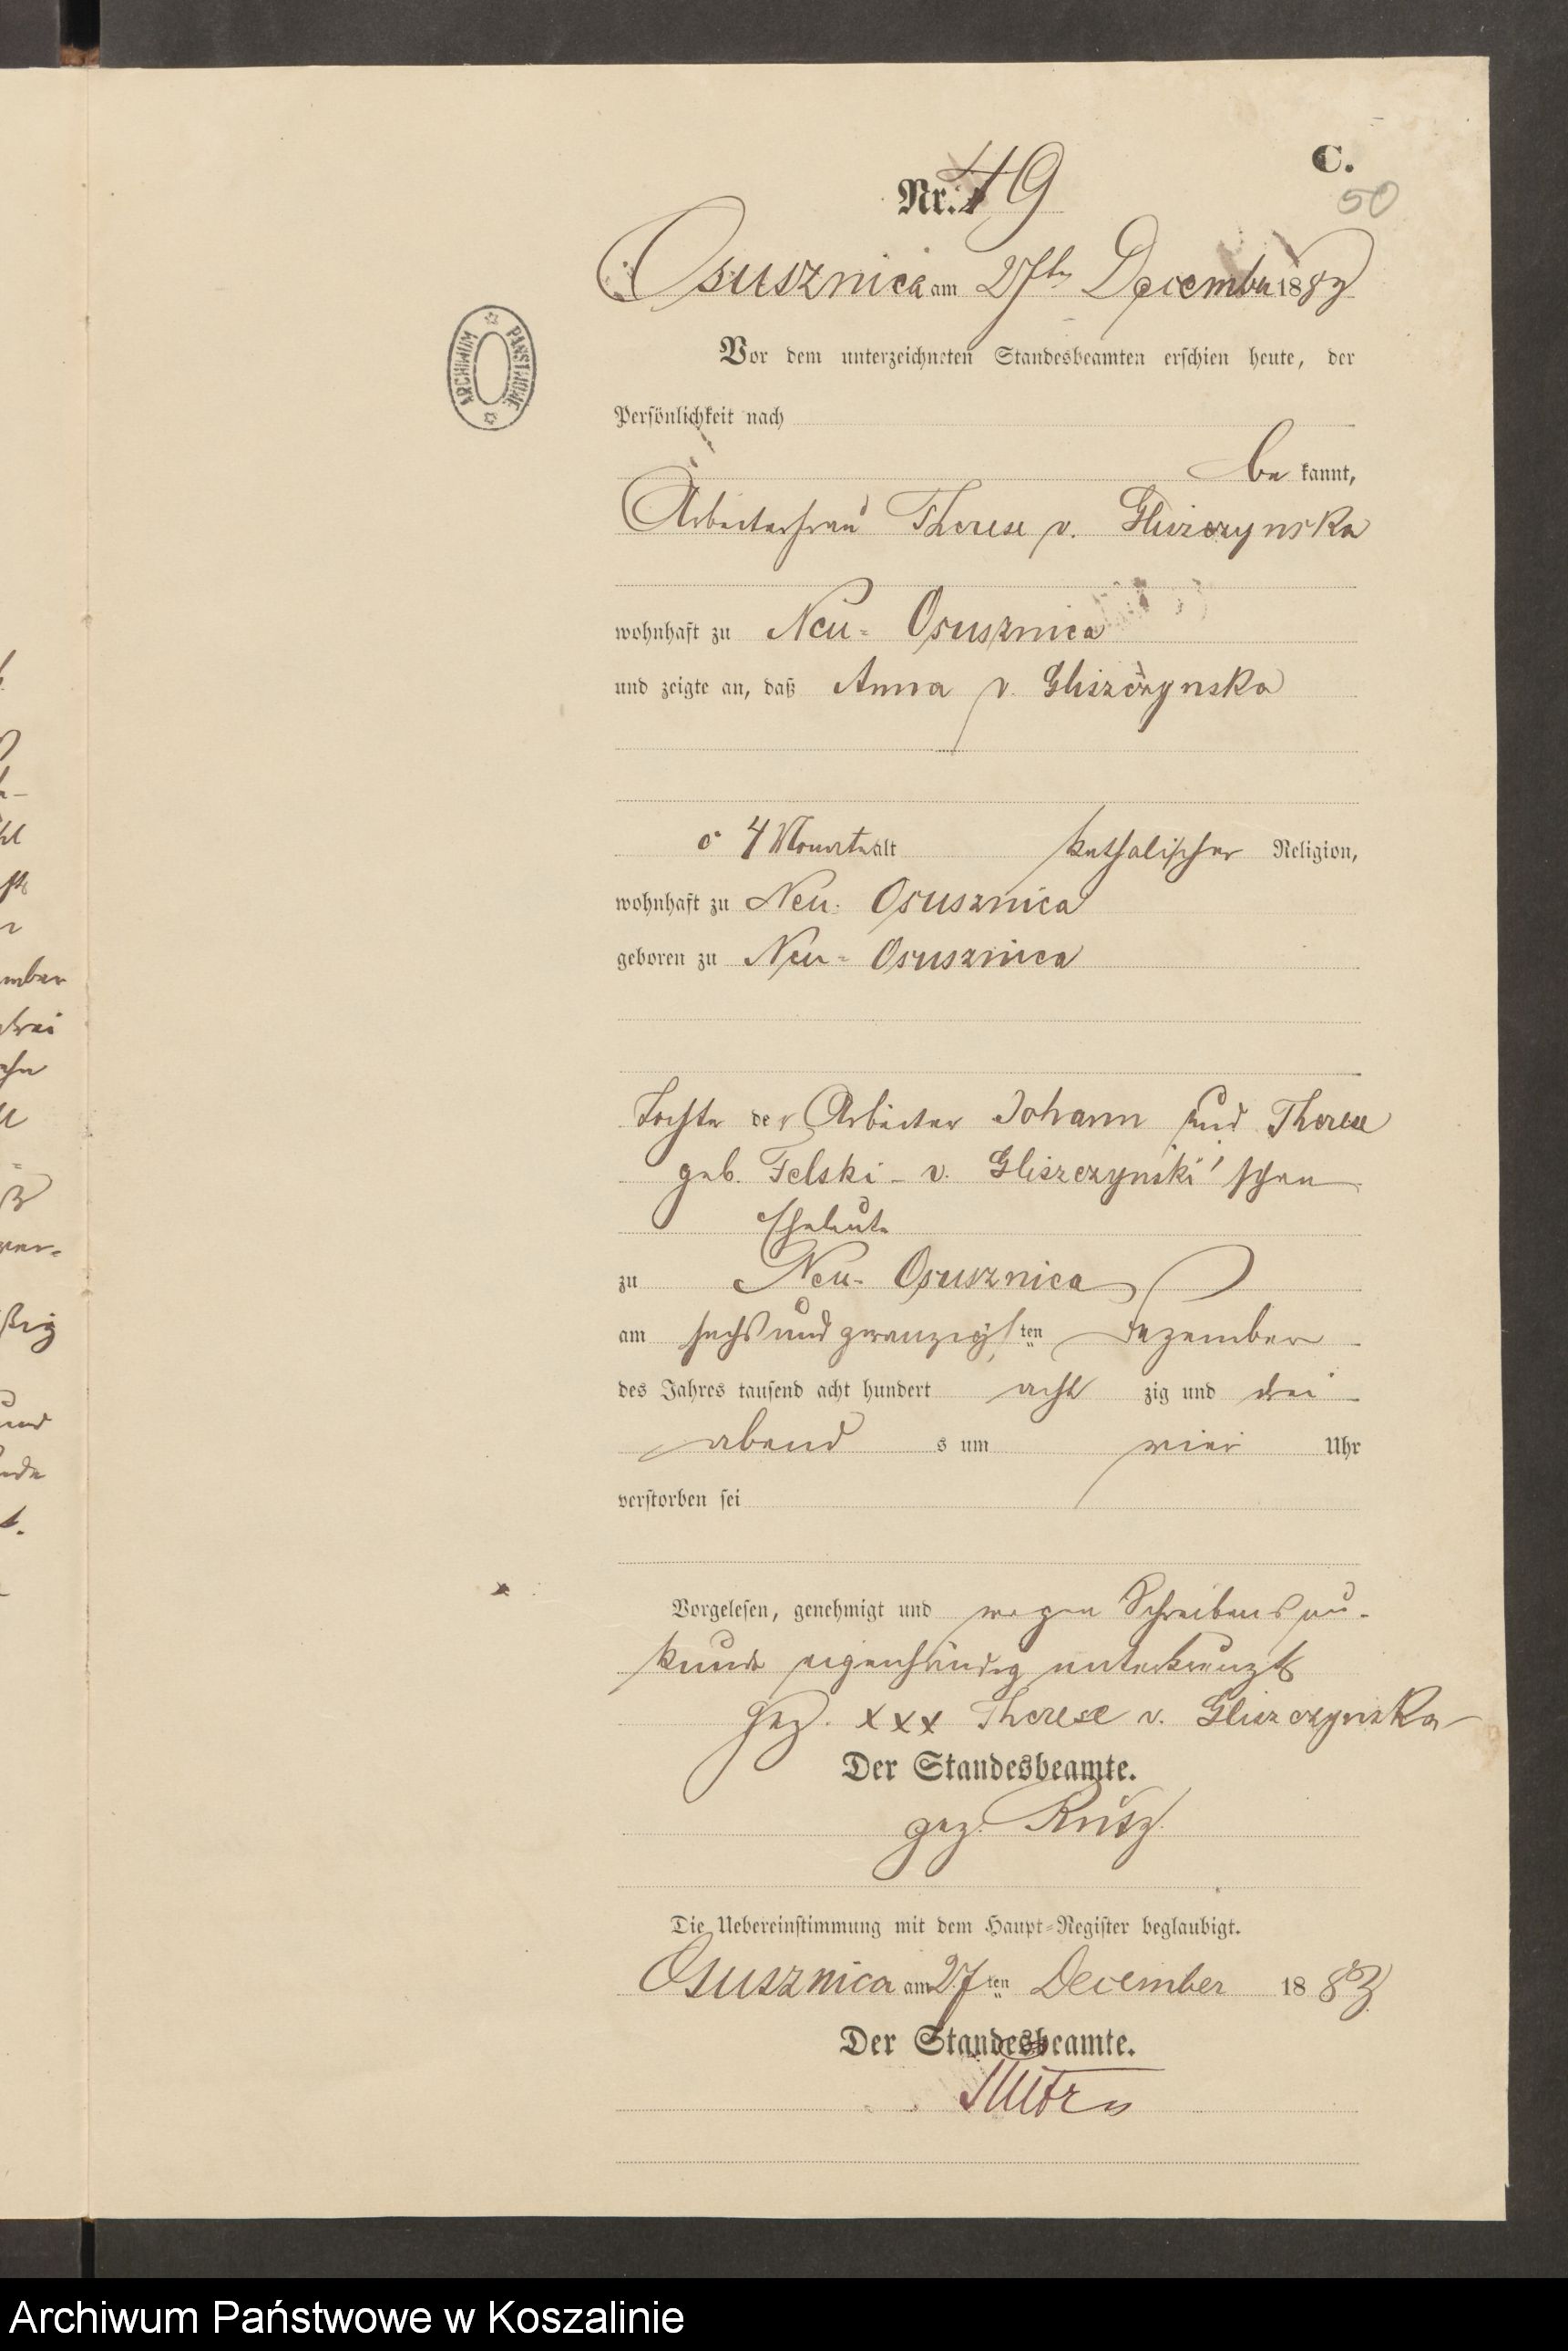 C.
Nr. 49
50
Osusznica am 27ten December 1883
Vor dem unterzeichneten Standesbeamten erschien heute, der
Persönlichkeit nach
be kannt,
Arbeiterfrau Therese v. Gliszczynska
wohnhaft zu Neu- Osusznica
und zeigte an, daß Anna v. Gliszczynska
4 Monate alt katholischer Religion,
wohnhaft zu Neu- Osusznica
geboren zu Neu- Osusznica
Tochter der Arbeiter Johann und Therese
geb. Felski - v. Gliszczynski'schen
Eheleute
zu Neu- Osusznica
am sechsundzwanzigsten ten Dezember
des Jahres tausend acht hundert acht zig und drei
abend s um vier Uhr
verstorben sei
Vorgelesen, genehmigt und wegen Schreibensun-
kunde eigenhändig unterkreuzt
gez. xxx Therese v. Gliszczynska
Der Standesbeamte.
gez.
Die Uebereinstimmung mit dem Haupt-Register beglaubigt.
Osusznica am 27 ten December 1883
Der Standesbeamte.
ARCHIWUM PAŃSTWOWE
Archiwum Państwowe w Koszalinie